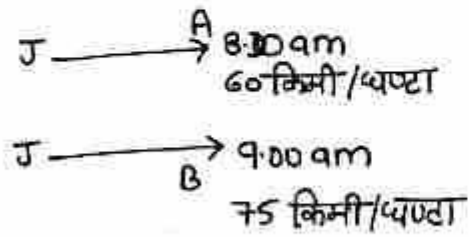 A
J 8.30 am
60 किमी/घण्टा
J 9.00 am
B
75 किमी/घण्टा